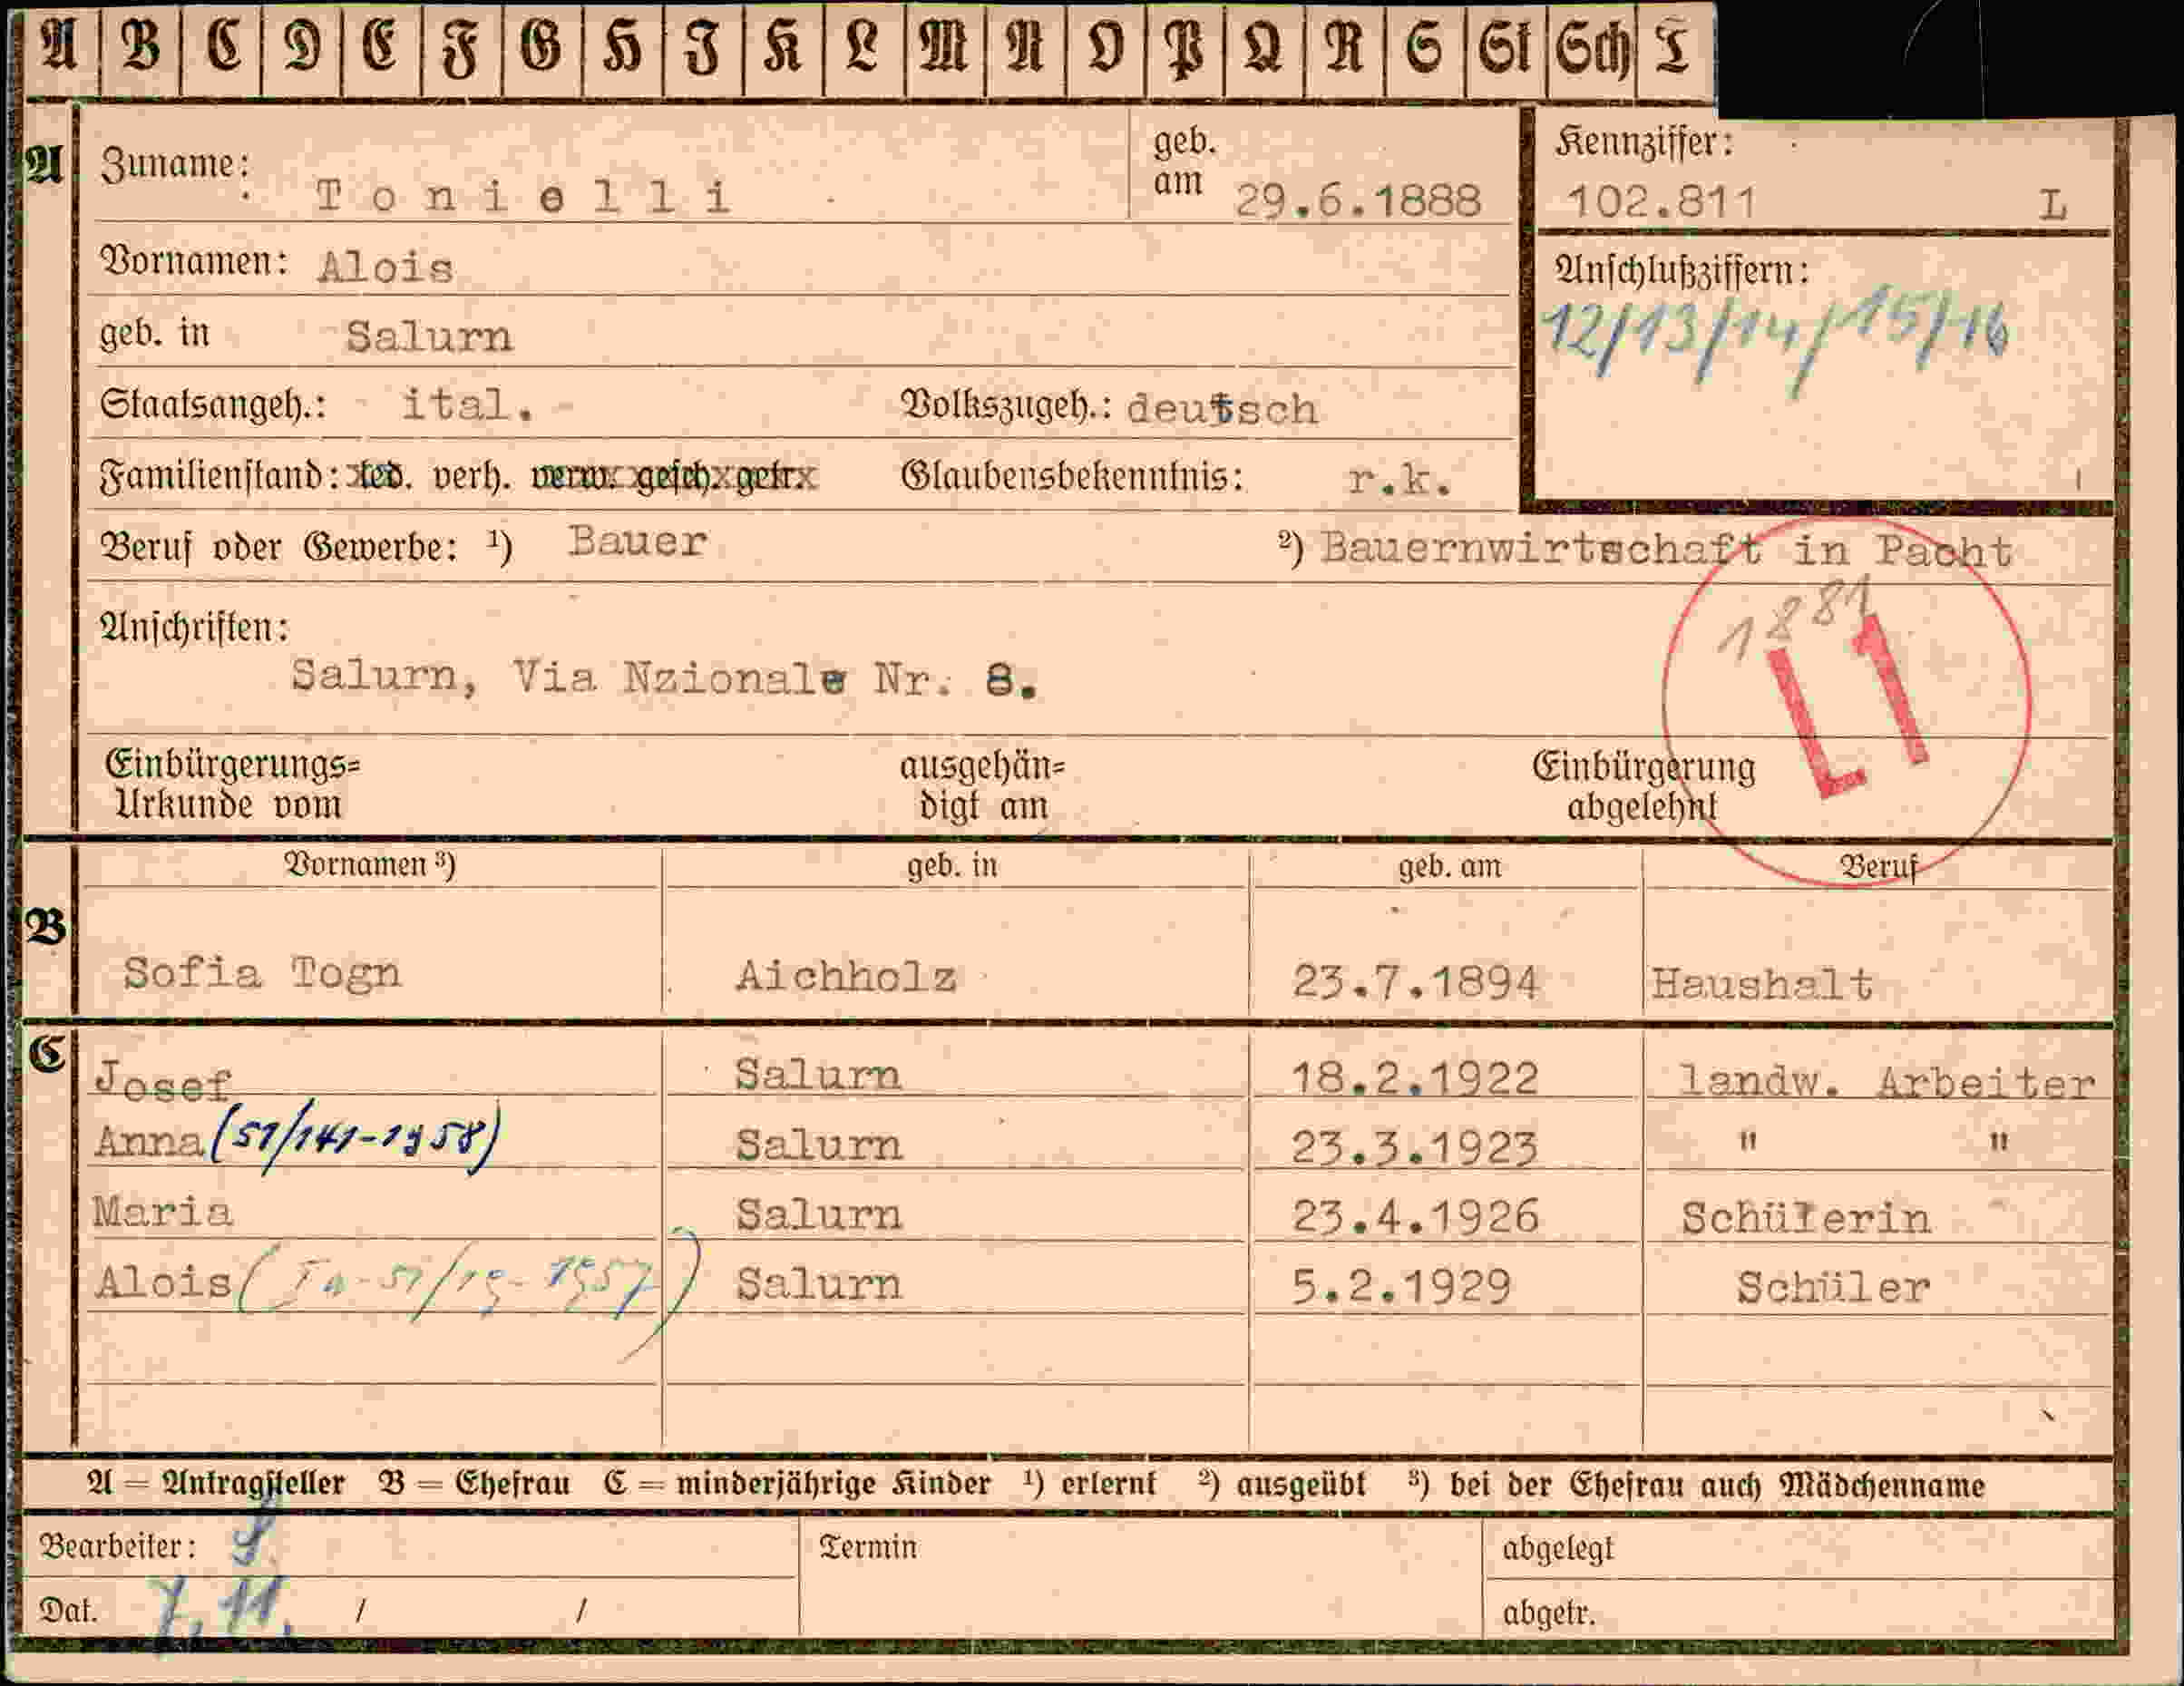 A B C D E F G H J K L M N O P Q R S St Sch T
A Zuname: Tonielli geb. am 29.6.1888 Kennziffer: 102.811 L
Vornamen: Alois Anschlußziffern:
12/13/14/15/16
geb. in Salurn
Staatsangeh.: ital. Volkszugeh.: deutsch
Familienstand: led. verh. verw. gesch. getr. Glaubensbekenntnis: r.k.
Beruf oder Gewerbe: ¹) Bauer ²) Bauernwirtschaft in Pacht
1881
L1
Anschriften:
Salurn, Via Nzionale Nr. 8.
Einbürgerungs= ausgehän= Einbürgerung
Urkunde vom digt am abgelehnt
Vornamen ³) geb. in geb. am Beruf
B
Sofia Togn Aichholz 23.7.1894 Haushalt
C
Josef Salurn 18.2.1922 landw. Arbeiter
Anna (51/141-1958) Salurn 23.3.1923 " "
Maria Salurn 23.4.1926 Schülerin
Alois Salurn 5.2.1929 Schüler
A = Antragsteller B = Ehefrau C = minderjährige Kinder ¹) erlernt ²) ausgeübt ³) bei der Ehefrau auch Mädchenname
Bearbeiter: Termin abgelegt
Dat. 7.11. / / abgetr.